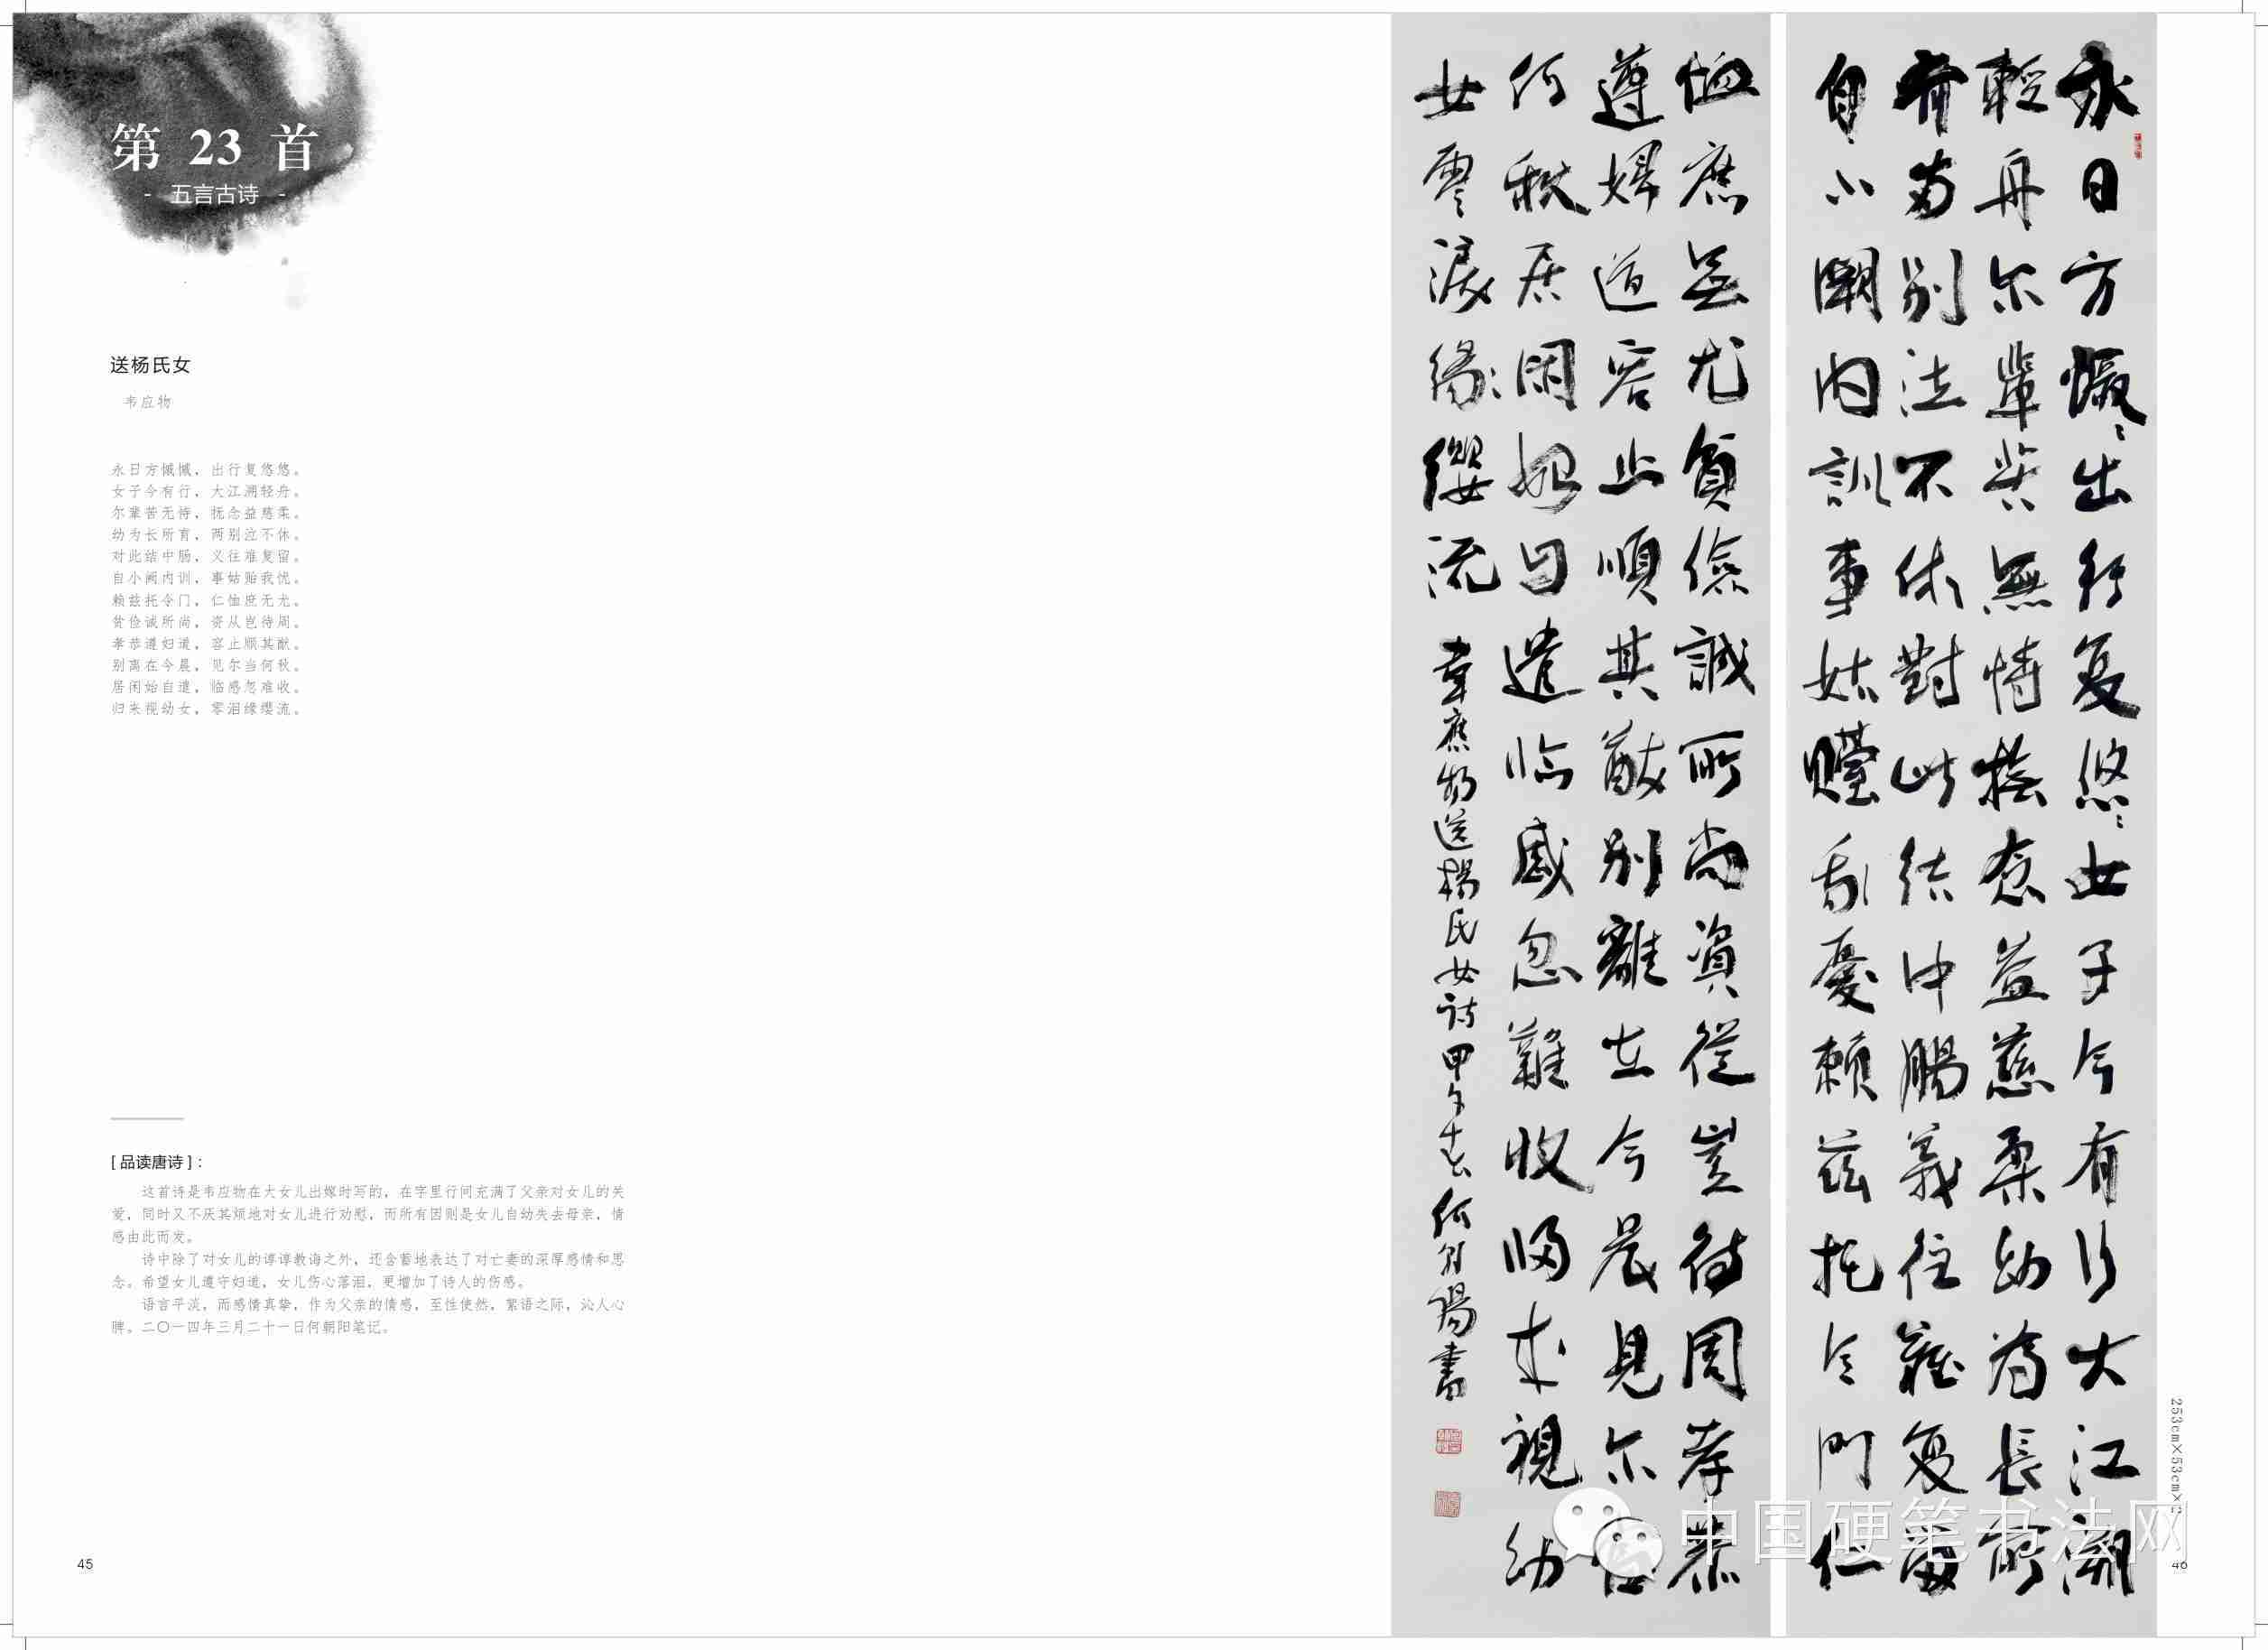 第 23 首
- 五言古诗 -
送杨氏女
韦应物
永日方慽慽，出行复悠悠。
女子今有行，大江溯轻舟。
尔辈苦无恃，抚念益慈柔。
幼为长所育，两别泣不休。
对此结中肠，义往难复留。
自小阙内训，事姑贻我忧。
赖兹托令门，仁恤庶无尤。
贫俭诚所尚，资从岂待周。
孝恭遵妇道，容止顺其猷。
别离在今晨，见尔当何秋。
居闲始自遣，临感忽难收。
归来视幼女，零泪缘缨流。
[ 品读唐诗 ]：
这首诗是韦应物在大女儿出嫁时写的，在字里行间充满了父亲对女儿的关
爱，同时又不厌其烦地对女儿进行劝慰，而所有因则是女儿自幼失去母亲，情
感由此而发。
诗中除了对女儿的谆谆教诲之外，还含蓄地表达了对亡妻的深厚感情和思
念。希望女儿遵守妇道，女儿伤心落泪，更增加了诗人的伤感。
语言平淡，而感情真挚，作为父亲的情感，至性使然，絮语之际，沁人心
脾。二〇一四年三月二十一日何朝阳笔记。
45
永日方慽〻出行复悠〻女子今有行大江溯
輕舟尔輩苦無恃撫念益慈柔幼為長所
育兩别泣不休對此結中腸義往難复留
自小闕内訓事姑貽我憂賴兹托令門仁
恤庶無尤貧儉誠所尚資從豈待周孝恭
遵婦道容止順其猷别離在今晨見尔當
何秋居閑始自遣临感忽難收歸来視幼
女零淚缘〻纓流
韋應物送楊氏女詩甲午 何朝陽書
253cm×53cm×2
46
中国硬笔书法网